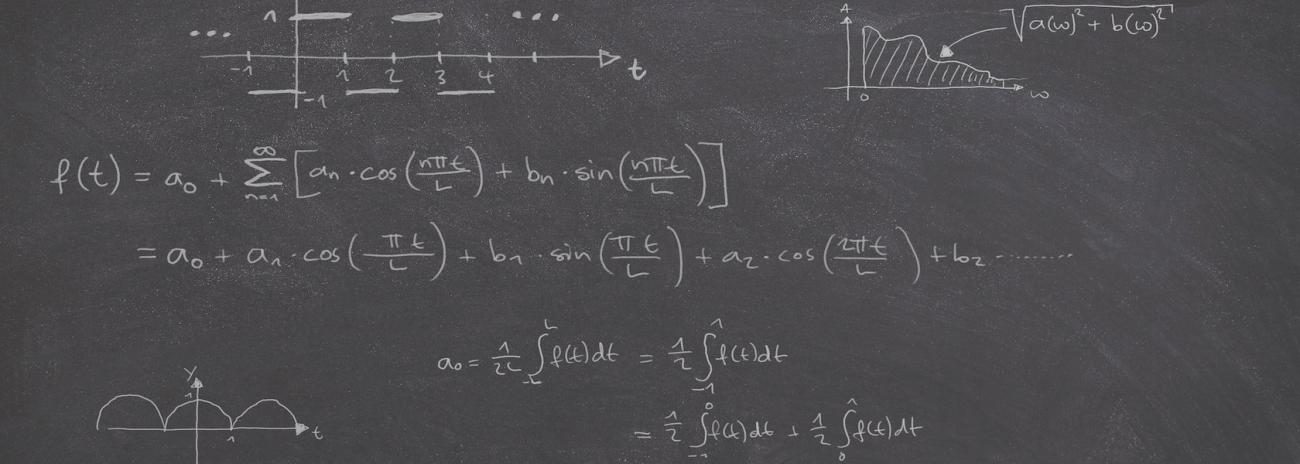 1 ... √a(ω)² + b(ω)²
A
-1 1 2 3 4 t
-1
0 ω
f(t) = a₀ + ∑ₙ₌₁^∞ [aₙ · cos(nπt/L) + bₙ · sin(nπt/L)]
= a₀ + a₁ · cos(πt/L) + b₁ · sin(πt/L) + a₂ · cos(2πt/L) + b₂ ........
a₀ = 1/2L ∫₋L^L f(t)dt = 1/2 ∫₋₁^1 f(t)dt
y
1
= 1/2 ∫₋₁^0 f(t)dt + 1/2 ∫₀^1 f(t)dt
1 t